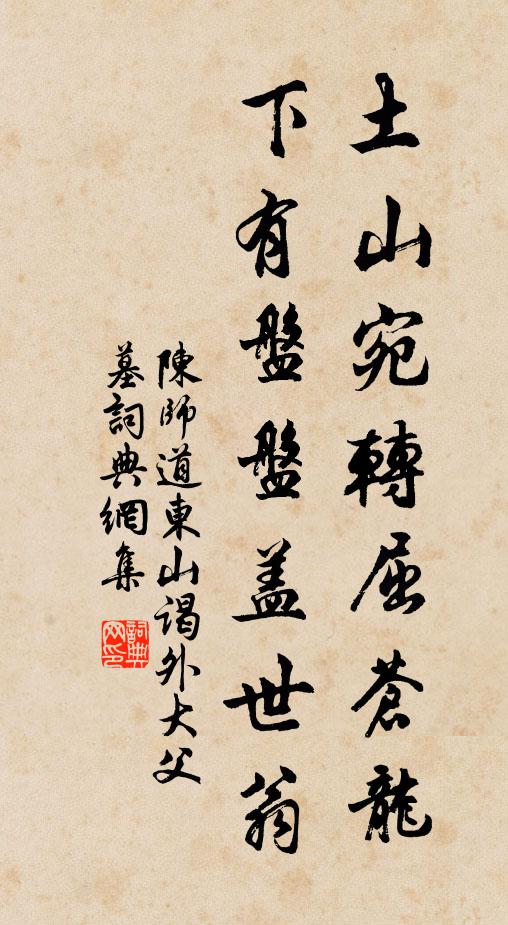 土山宛轉屈蒼龍
下有盤盤盖世翁
陳師道東山謁外大父
墓詞典網集
詞典网印